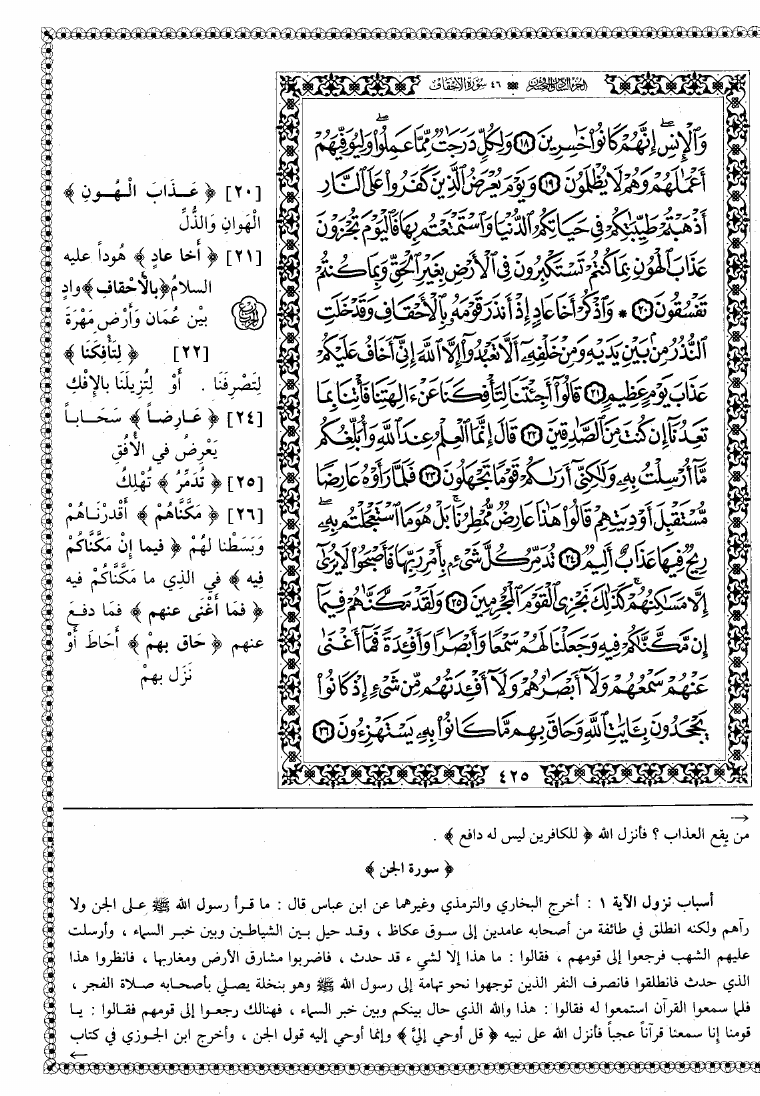 الجزء السادس والعشرون ٤٦ سورة الأحقاف
وَٱلْإِنسِ إِنَّهُمْ كَانُوا۟ خَٰسِرِينَ ١٨ وَلِكُلٍّ دَرَجَٰتٌ مِّمَّا عَمِلُوا۟ وَلِيُوَفِّيَهُمْ
أَعْمَٰلَهُمْ وَهُمْ لَا يُظْلَمُونَ ١٩ وَيَوْمَ يُعْرَضُ ٱلَّذِينَ كَفَرُوا۟ عَلَى ٱلنَّارِ
أَذْهَبْتُمْ طَيِّبَٰتِكُمْ فِى حَيَاتِكُمُ ٱلدُّنْيَا وَٱسْتَمْتَعْتُم بِهَا فَٱلْيَوْمَ تُجْزَوْنَ
عَذَابَ ٱلْهُونِ بِمَا كُنتُمْ تَسْتَكْبِرُونَ فِى ٱلْأَرْضِ بِغَيْرِ ٱلْحَقِّ وَبِمَا كُنتُمْ
تَفْسُقُونَ ٢٠ * وَٱذْكُرْ أَخَا عَادٍ إِذْ أَنذَرَ قَوْمَهُۥ بِٱلْأَحْقَافِ وَقَدْ خَلَتِ
ٱلنُّذُرُ مِنۢ بَيْنِ يَدَيْهِ وَمِنْ خَلْفِهِۦٓ أَلَّا تَعْبُدُوٓا۟ إِلَّا ٱللَّهَ إِنِّىٓ أَخَافُ عَلَيْكُمْ
عَذَابَ يَوْمٍ عَظِيمٍ ٢١ قَالُوٓا۟ أَجِئْتَنَا لِتَأْفِكَنَا عَنْ ءَالِهَتِنَا فَأْتِنَا بِمَا
تَعِدُنَآ إِن كُنتَ مِنَ ٱلصَّٰدِقِينَ ٢٢ قَالَ إِنَّمَا ٱلْعِلْمُ عِندَ ٱللَّهِ وَأُبَلِّغُكُم
مَّآ أُرْسِلْتُ بِهِۦ وَلَٰكِنِّىٓ أَرَىٰكُمْ قَوْمًا تَجْهَلُونَ ٢٣ فَلَمَّا رَأَوْهُ عَارِضًا
مُّسْتَقْبِلَ أَوْدِيَتِهِمْ قَالُوا۟ هَٰذَا عَارِضٌ مُّمْطِرُنَا بَلْ هُوَ مَا ٱسْتَعْجَلْتُم بِهِۦ
رِيحٌ فِيهَا عَذَابٌ أَلِيمٌ ٢٤ تُدَمِّرُ كُلَّ شَىْءٍۭ بِأَمْرِ رَبِّهَا فَأَصْبَحُوا۟ لَا يُرَىٰٓ
إِلَّا مَسَٰكِنُهُمْ كَذَٰلِكَ نَجْزِى ٱلْقَوْمَ ٱلْمُجْرِمِينَ ٢٥ وَلَقَدْ مَكَّنَّٰهُمْ فِيمَآ
إِن مَّكَّنَّٰكُمْ فِيهِ وَجَعَلْنَا لَهُمْ سَمْعًا وَأَبْصَٰرًا وَأَفْـِٔدَةً فَمَآ أَغْنَىٰ
عَنْهُمْ سَمْعُهُمْ وَلَآ أَبْصَٰرُهُمْ وَلَآ أَفْـِٔدَتُهُم مِّن شَىْءٍ إِذْ كَانُوا۟
يَجْحَدُونَ بِـَٔايَٰتِ ٱللَّهِ وَحَاقَ بِهِم مَّا كَانُوا۟ بِهِۦ يَسْتَهْزِءُونَ ٢٦
٤٢٥
[٢٠] ﴿ عَـذَابَ الْهُـونِ ﴾
الْهَوانِ وَالذُّلِّ
[٢١] ﴿ أَخا عادٍ ﴾ هُوداً عليه
السلامُ ﴿بالْأحْقافِ﴾ وادٍ
بيْن عُمَان وَأَرْضِ مَهْرَةَ
[٢٢] ﴿ لِتَأْفِكَنَا ﴾
لِتَصْرِفَنَا . أَوْ لِتُزِيلَنَا بالإِفْكِ
[٢٤] ﴿ عَـارِضـاً ﴾ سَحَـابـاً
يَعْرِضُ في الأُفُقِ
[٢٥] ﴿ تُدَمِّرُ ﴾ تُهْلِكُ
[٢٦] ﴿ مَكَّنَّاهُمْ ﴾ أَقْدَرْنَـاهُمْ
وَبَسَطْنا لهُمْ ﴿ فيما إِنْ مَكَّنَّاكُمْ
فِيه ﴾ في الذِي ما مَكَّنَّاكُمْ فيه
﴿ فمَا أَغْنَى عنهم ﴾ فمَا دفـعَ
عنهم ﴿ حَاق بِهمْ ﴾ أَحَاطَ أَوْ
نَزَل بهمْ
من يقع العذاب ؟ فأنزل الله ﴿ للكافرين ليس له دافع ﴾ .
﴿ سورة الجن ﴾
أسباب نزول الآية ١ : أخرج البخاري والترمذي وغيرهما عن ابن عباس قال : ما قـرأ رسول الله ﷺ علـى الجن ولا
رآهم ولكنه انطلق في طائفة من أصحابه عامدين إلى سـوق عكاظ ، وقـد حيل بـين الشياطـين وبين خبـر السماء ، وأرسلت
عليهم الشهب فرجعوا إلى قومهم ، فقالوا : ما هذا إلا لشيء قد حدث ، فاضربوا مشارق الأرض ومغاربها ، فانظروا هذا
الذي حدث فانطلقوا فانصرف النفر الذين توجهوا نحو تهامة إلى رسول الله ﷺ وهو بنخلة يصلي بأصحابه صلاة الفجر ،
فلما سمعوا القرآن استمعوا له فقالوا : هذا والله الذي حال بينكم وبين خبر السماء ، فهنالك رجعـوا إلى قومهم فقـالوا : يـا
قومنا إنا سمعنا قرآناً عجباً فأنزل الله على نبيه ﴿ قل أوحي إليَّ ﴾ وإنما أوحي إليه قول الجن ، وأخرج ابن الجـوزي في كتاب